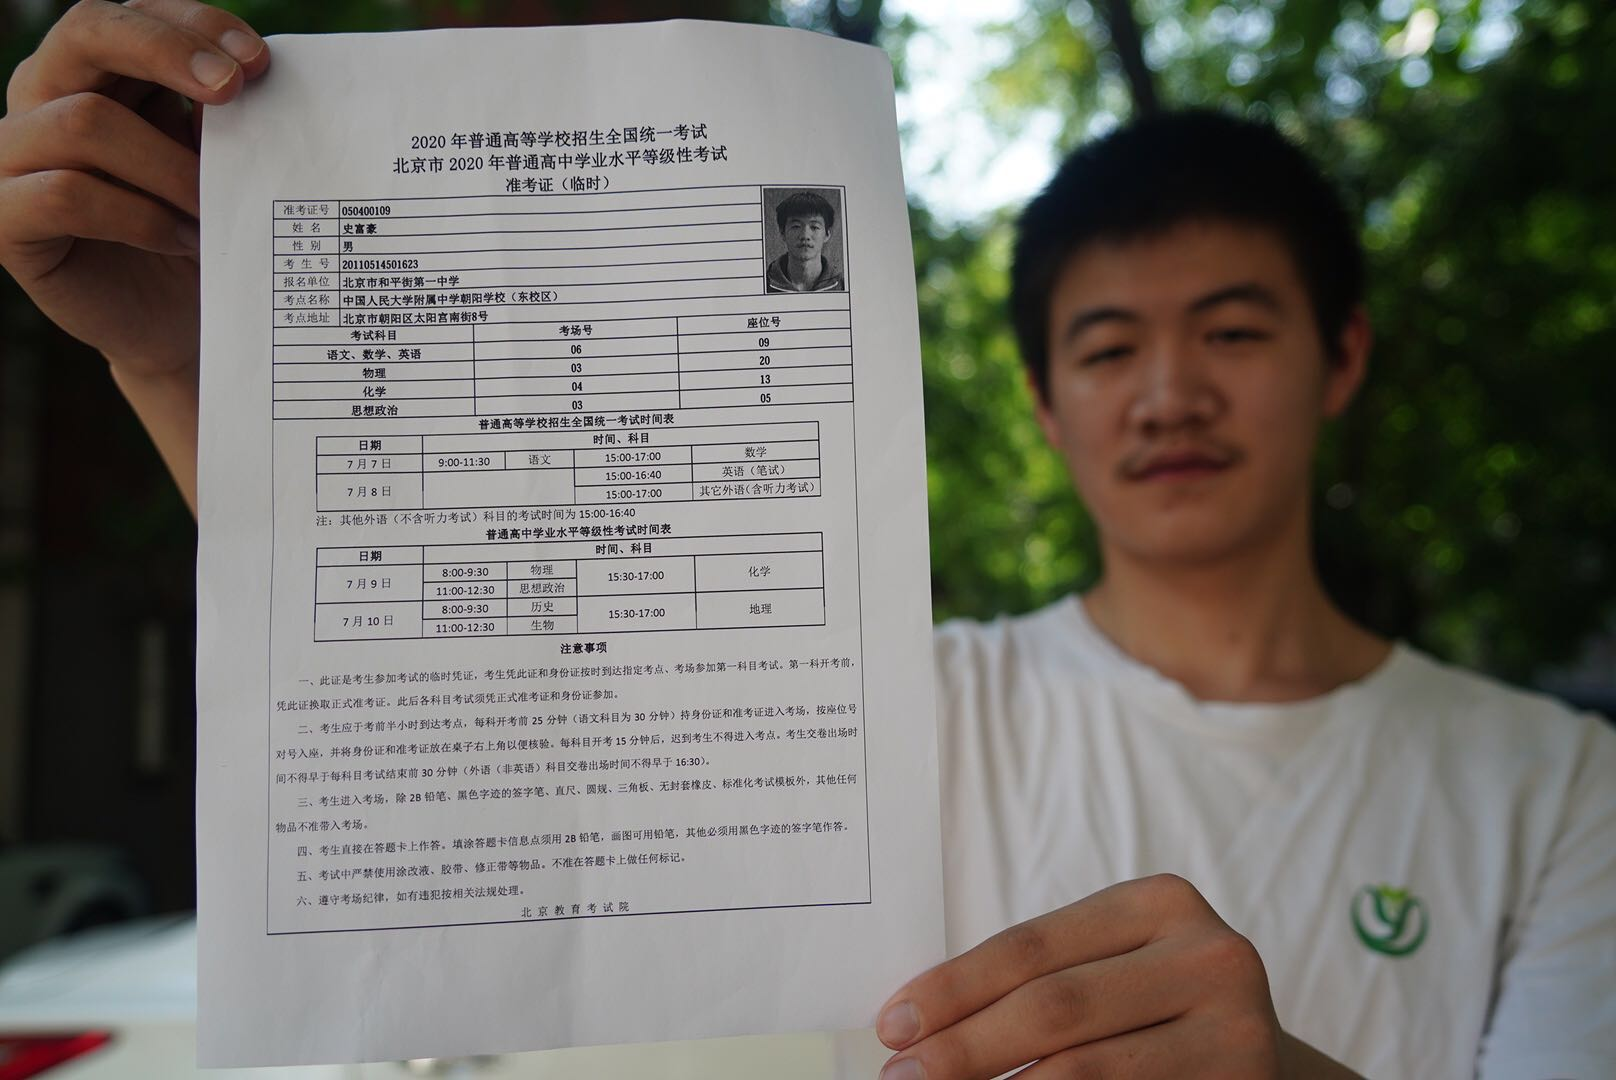 2020 年普通高等学校招生全国统一考试
北京市 2020 年普通高中学业水平等级性考试
准考证（临时）
准考证号 050400109
姓 名 史富豪
性 别 男
考 生 号 20110514501623
报名单位 北京市和平街第一中学
考点名称 中国人民大学附属中学朝阳学校（东校区）
考点地址 北京市朝阳区太阳宫南街8号
考试科目 考场号 座位号
语文、数学、英语 06 09
物理 03 20
化学 04 13
思想政治 03 05
普通高等学校招生全国统一考试时间表
日期 时间、科目
7 月 7 日 9:00-11:30 语文 15:00-17:00 数学
7 月 8 日 15:00-16:40 英语（笔试）
15:00-17:00 其它外语(含听力考试)
注：其他外语（不含听力考试）科目的考试时间为 15:00-16:40
普通高中学业水平等级性考试时间表
日期 时间、科目
7 月 9 日 8:00-9:30 物理 15:30-17:00 化学
11:00-12:30 思想政治
7 月 10 日 8:00-9:30 历史 15:30-17:00 地理
11:00-12:30 生物
注意事项
一、此证是考生参加考试的临时凭证，考生凭此证和身份证按时到达指定考点、考场参加第一科目考试。第一科开考前，
凭此证换取正式准考证。此后各科目考试须凭正式准考证和身份证参加。
二、考生应于考前半小时到达考点，每科开考前 25 分钟（语文科目为 30 分钟）持身份证和准考证进入考场，按座位号
对号入座，并将身份证和准考证放在桌子右上角以便核验。每科目开考 15 分钟后，迟到考生不得进入考点。考生交卷出场时
间不得早于每科目考试结束前 30 分钟（外语（非英语）科目交卷出场时间不得早于 16:30）。
三、考生进入考场，除 2B 铅笔、黑色字迹的签字笔、直尺、圆规、三角板、无封套橡皮、标准化考试模板外，其他任何
物品不准带入考场。
四、考生直接在答题卡上作答。填涂答题卡信息点须用 2B 铅笔，画图可用铅笔，其他必须用黑色字迹的签字笔作答。
五、考试中严禁使用涂改液、胶带、修正带等物品。不准在答题卡上做任何标记。
六、遵守考场纪律，如有违犯按相关法规处理。
北 京 教 育 考 试 院